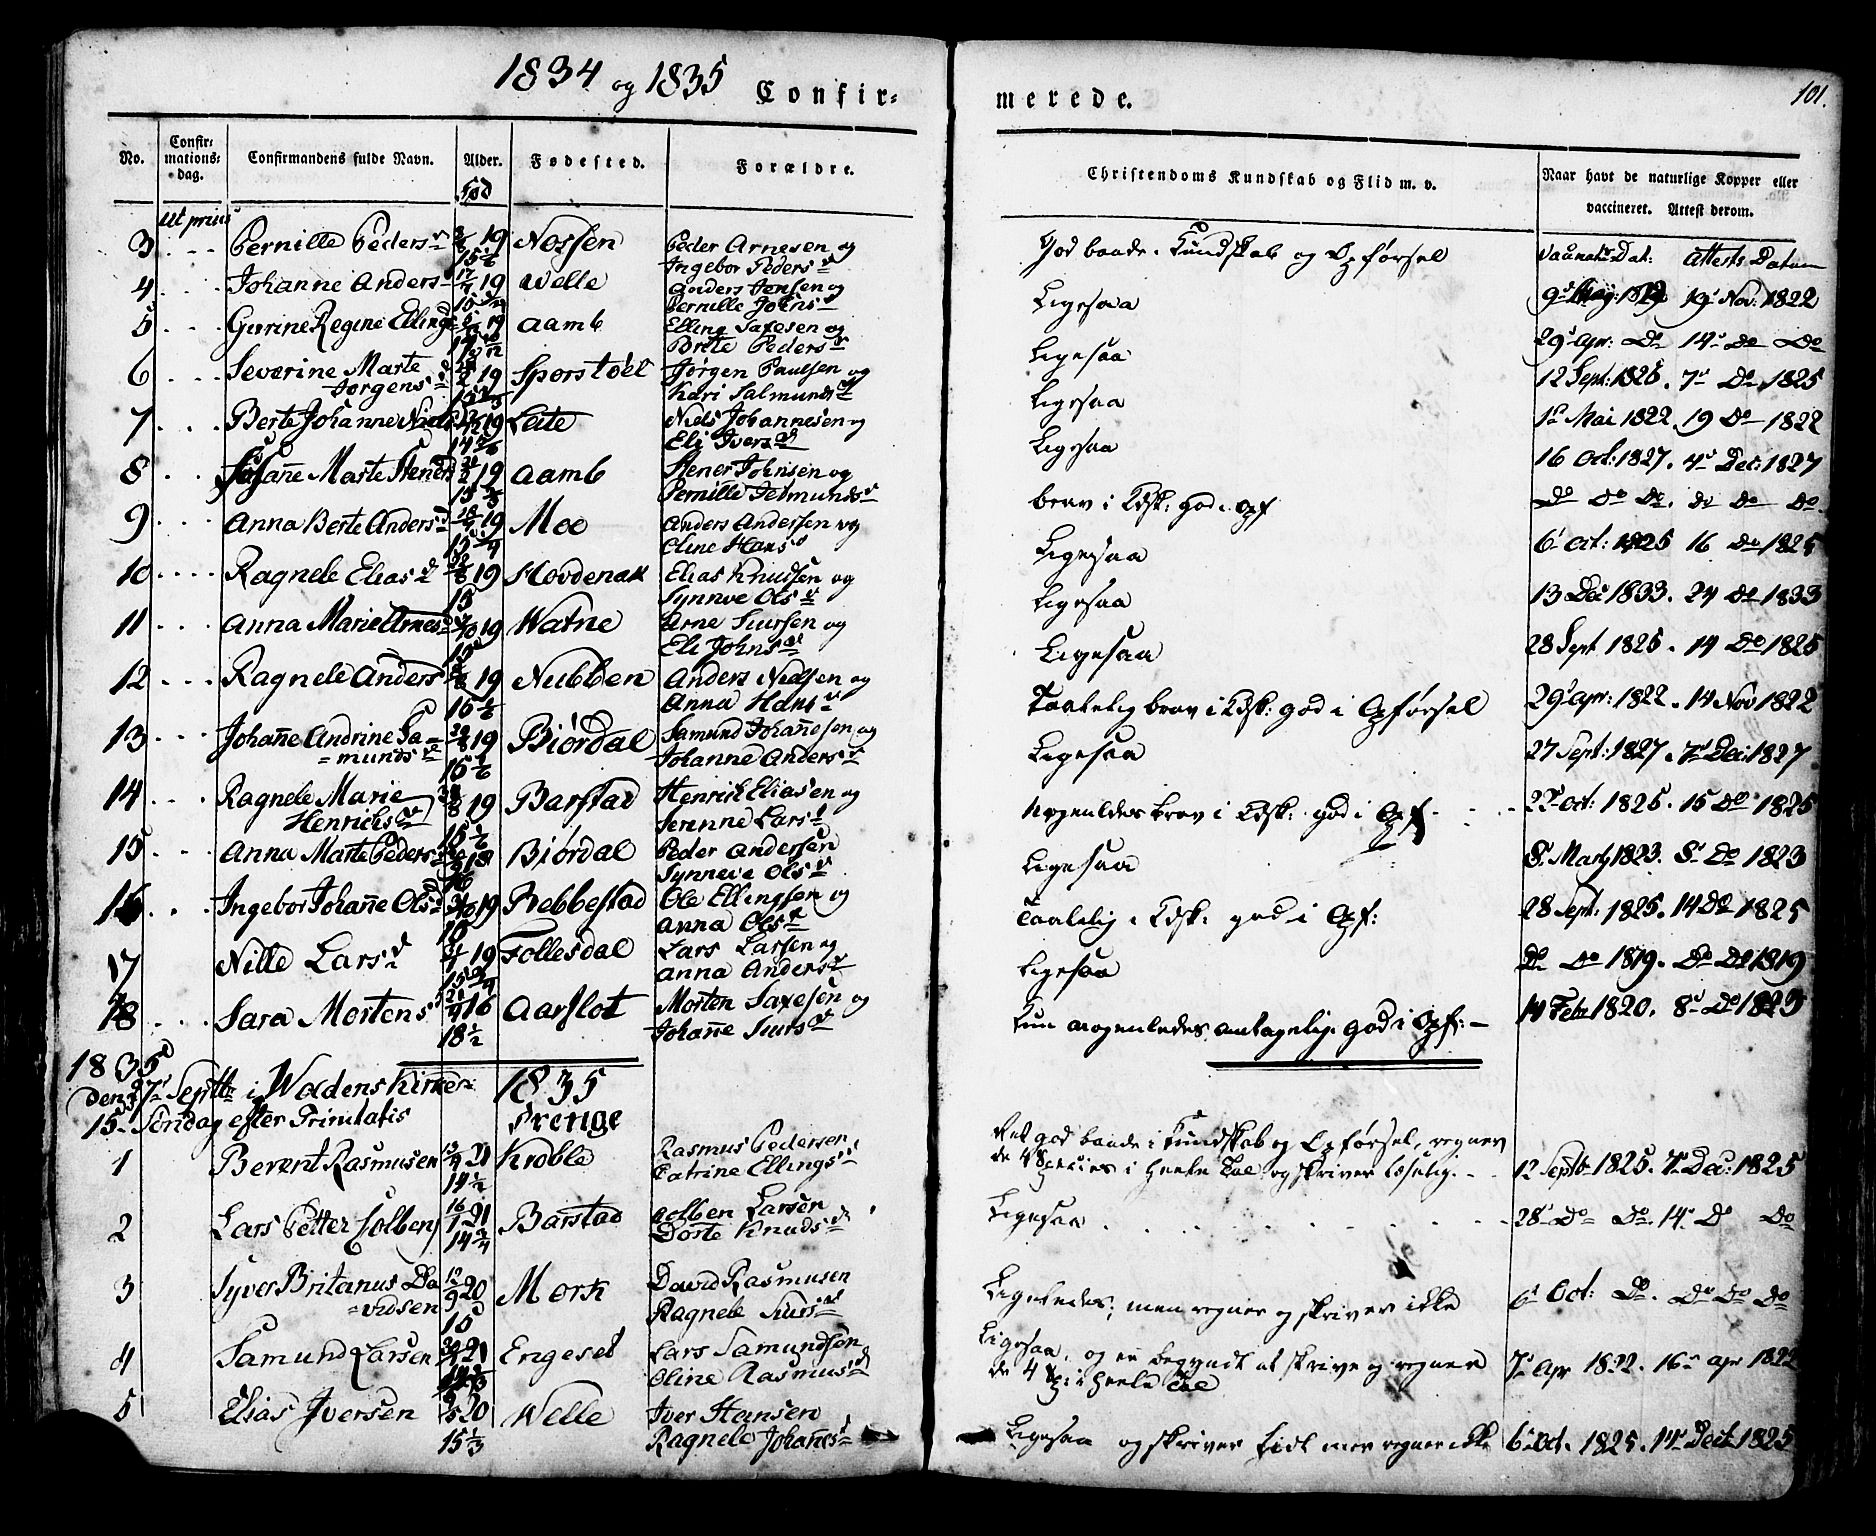 1834 og 1835
Confir-
merede.
101.
No.
Confir-
mations-
dag.
Confirmandens fulde Navn.
Alder.
Fødested.
Forældre.
Christendoms Kundskab og Flid m. v.
Naar havt de naturlige Kopper eller
vaccineret. Attest derom.
Ut prius
3 Pernille Peders 19 Nossen Peder Arnesen og
Ingebor Peders
God baade i Kundskab og Opførsel
Attests Datum
19 Nov: 1822
4 Johanne Anders 19 Welle Anders Jensen og
Pernille Johns
Ligesaa
29 Apr: Do 14 Do Do
5 Regine Ellings 19 Aamb Elling Saxesen og
Brite Peders
Ligesaa
12 Sept: 1825. 7 Do 1825
6 Severine Marte
Jørgens 19 Sporstøel Jørgen Paulsen og
Kari Salmunds
Ligesaa
1 Mai 1822. 19 Do 1822
7 Berte Johanne Niels 19 Leite Niels Johannesen og
Eli Ivers
Ligesaa
16 Oct: 1827. 4 Dec: 1827
8 Marte Steners 19 Aamb Stener Johnsen og
Pernille
brav i Kdsk: god i Opf
Do Do Do. Do Do Do.
9 Anna Berte Anders 19 Moe Anders Andersen og
Oline Hans
Ligesaa
6 Oct: 1825 16 Do 1825
10 Ragnele Elias 19 Hovdenak Elias Knudsen og
Synnve Ols
Ligesaa
13 Dec 1833. 24 Do 1833
11 Anna Marie Arnes 19 Watne Arne Siursen og
Eli Johns
Ligesaa
28 Sept 1825. 14 Do 1825
12 Ragnele Anders 19 Nubben Anders Nielsen og
Anna Hans
Taalelig brav i Kdsk: god i Opførsel
29 Apr: 1822. 14 Nov 1822
13 Johañe Andrine Sa=
=munds 19 Biørdal Samund Johañesen og
Johanne Anders
Ligesaa
27 Sept: 1827. 7 Dec: 1827
14 Ragnele Marie
Henrichs 19 Barstad Henrich Eliasen og
Serenne Lars
nogenledes brav i Kdsk: god i Opf
Oct: 1825. 15 Do 1825
15 Anna Marte Peders 18 Biørdal Peder Andersen
Synneve Ols
Ligesaa
8 Marts 1823. 8 Do 1823
16 Ingebor Johañe Ols 19 Rebbestad Ole Ellingsen og
Anna Ols
Taalelig i Kdsk: god i Opf:
28 Sept: 1825. 14 Do 1825
17 Nille Lars 19 Follesdal Lars Larsen og
Anna Anders
Ligesaa
Do Do 1819. Do Do 1819
18 Sara Mortens 16 Aarflot Morten Saxesen og
18 1/2 Johañe Siurs
Kun nogenledes antagelig. god i Opf:
14 Febr 1820. 8 Do 1823
1835
Den 27 Septbr i Woldens Kirke 1835
15 Søndag efter Trinitatis Drenge
1 Berent Rasmusen 21 Krøble Rasmus Pedersen
14 1/2 Catrine Ellings
Ret god baade i Kundskab og Opførsel, regner
de 4 Species i heele Tal og skriver læselig.
12 Septbr 1825. 7 Dec: 1825
2 Lars Petter Colbens 21 Barstad Colben Larsen
14 3/4 Dorte Knuds
Ligesaa
28 Do Do. 14 Do Do
3 Syver Britanus Da
=vidsen 20 Mork David Rasmusen
Ragnele Siurs
Ligeledes, men regner og skriver ikke
6 Oct: Do. Do Do Do
4 Samund Larsen 21 Engeset Lars Samundsen
Oline Rasmus
Ligesaa, og er begyndt at skrive og regner
de 4 Sp: i heele Tal
7 Apr 1822. 16 Apr 1822
5 Elias Iversen 20 Welle Iver Hansen
15 1/3 Ragnele Johañes
Ligesaa og skriver lidt men regner ikke
6 Oct. 1825. 14 Dec 1825